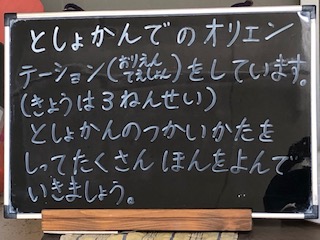 としょかんでのオリエン
テーション(おりえんてえしょん)をしています。
(きょうは3ねんせい)
としょかんのつかいかたを
しってたくさんほんをよんで
いきましょう。